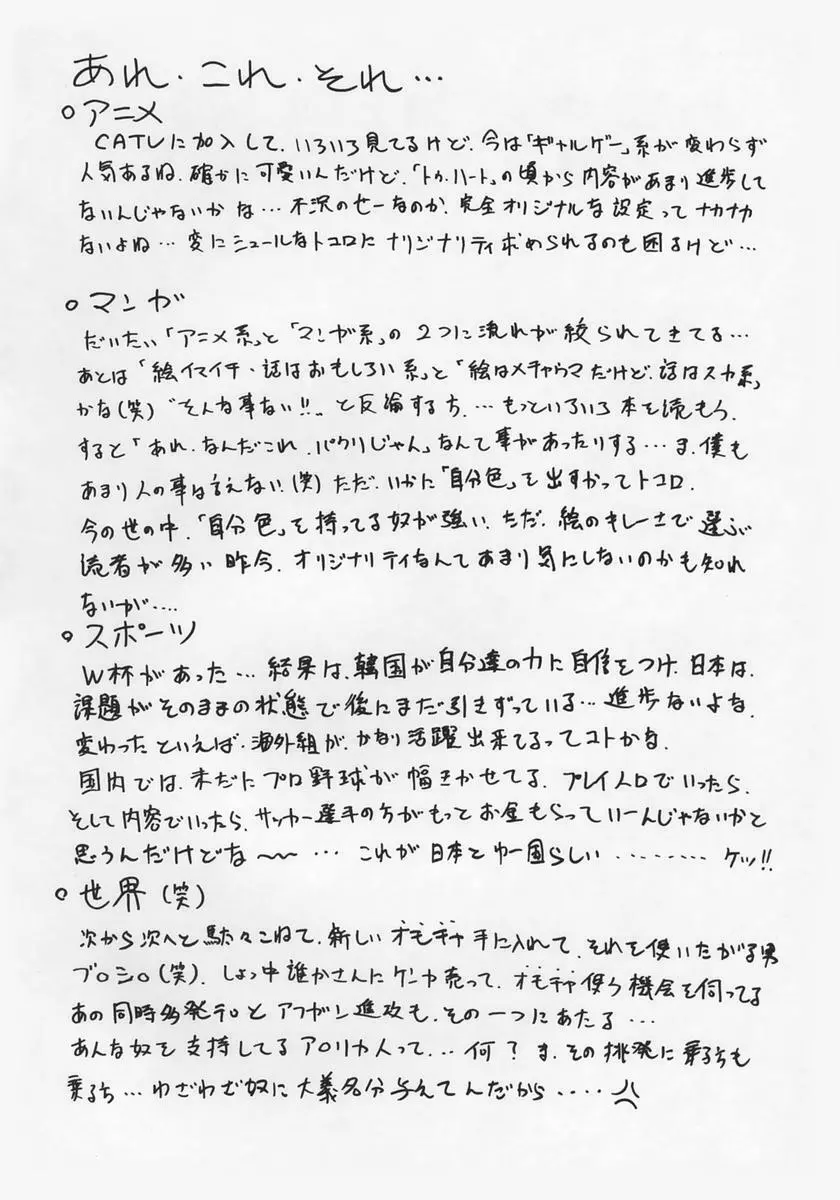 あれ・これ・それ…
○アニメ
CATVに加入して、いろいろ見てるけど、今は「ギャルゲー」系が変わらず
人気あるね、確かに可愛いんだけど、「トゥ・ハート」の頃から内容があまり進歩して
ないんじゃないかな…不況のせーなのか、完全オリジナルな設定ってナカナカ
ないよね…変にシュールなトコロにオリジナリティ求められるのも困るけど…
○マンガ
だいたい「アニメ系」と「マンガ系」の2つに流れが絞られてきてる…
あとは「絵イマイチ・話はおもしろい系」と「絵はメチャウマだけど、話はスカ系」
かな(笑)"そんな事ない!!"と反論する方、…もっといろいろ本を読もう、
すると「あれ、なんだこれ、パクリじゃん」なんて事があったりする…ま、僕も
あまり人の事は言えない、(笑)ただ、いかに「自分色」を出すかってトコロ、
今の世の中、「自分色」を持ってる奴が強い、ただ、絵のキレーさで選ぶ
読者が多い昨今、オリジナリティなんてあまり気にしないのかも知れ
ないが‥‥
○スポーツ
W杯があった…結果は、韓国が自分達の力に自信をつけ、日本は、
課題がそのままの状態で後にまだ引きずっている…進歩ないよな、
変わったといえば、海外組が、かなり活躍出来てるってコトかな、
国内では、未だにプロ野球が幅きかせてる、プレイ人口でいったら、
そして内容でいったら、サッカー選手の方がもっとお金もらっていーんじゃないかと
思うんだけどな〜〜…これが日本とゆー国らしい………ケッ!!
○世界(笑)
次から次へと駄々こねて、新しいオモチャ手に入れて、それを使いたがる男
ブ○シ○(笑)、しょっ中誰かさんにケンカ売って、オモチャ使う機会を伺ってる
あの同時多発テロとアフガン進攻も、その一つにあたる…
あんな奴を支持してるア○リカ人って、…何?ま、その挑発に乗る方も
乗る方…わざわざ奴に大義名分与えてんだから‥‥